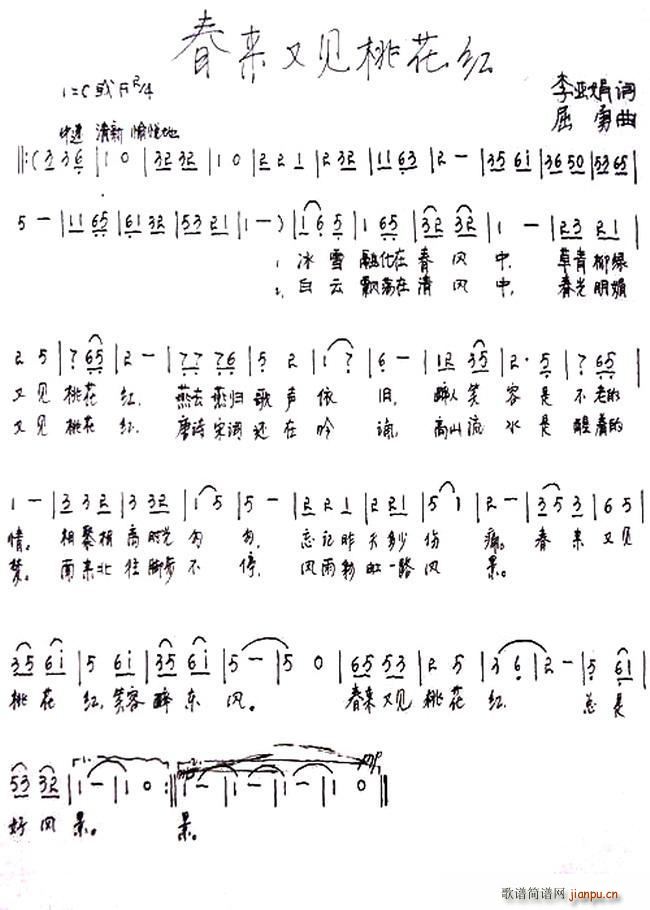 春来又见桃花红
1=C或F 2/4
李亚娟词
中速 清新 愉悦地
屈勇曲
‖:(3 3 6 | 1 0 | 32 32 | 1 0 | 2 2 1 | 2 32 | 11 63 | 2 - | 35 61 | 36 50 | 53 65 |
5 - | 11 65 | 61 32 | 53 21 | 1 - ) | 1 6 5 | 1 65 | 32 32 | 1 - | 23 21 |
1. 冰雪融化在春风中, 草青柳绿
2. 白云飘荡在清风中, 春光明媚
2 5 | 7 65 | 2 - | 77 76 | 5 2 | 1 7 | 6 - | 12 35 | 2· 5 | 7 65 |
又见桃花红. 燕去燕归歌声依旧, 醉人笑容是不老的
又见桃花红. 唐诗宋词还在吟诵, 高山流水是醒着的
1 - | 3 32 | 3 32 | 1 5 | 5 - | 22 1 | 221 | 5 1 | 2 - | 3 5 3 | 6 5 |
情。相聚相离时光匆匆, 忘记昨天多少伤痛。春来又见
梦。南来北往脚步不停, 风雨彩虹一路风景。
35 61 | 5 61 | 35 61 | 5 - | 5 0 | 65 53 | 2 5 | 3 6 | 2 - | 5 61 |
桃花红, 笑容醉东风。春来又见桃花红. 总是
53 32 | 1 - | 1 0 :‖ 1 - | 1 - | 1 - | 1 0 ‖
好风景。景。
歌谱简谱网
jianpu.cn